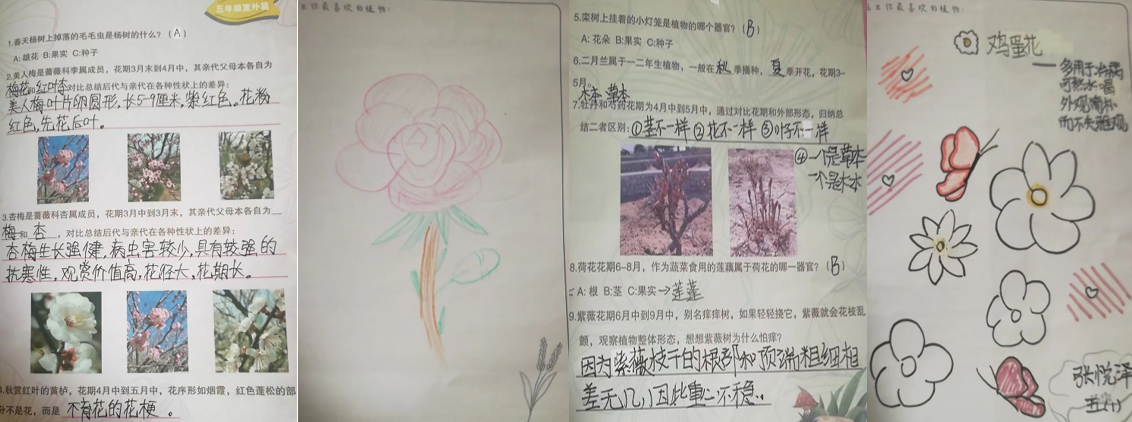 五年级室外篇
1.春天杨树上掉落的毛毛虫是杨树的什么？（A）
A: 雄花 B:果实 C:种子
2.美人梅是蔷薇科李属成员，花期3月末到4月中，其亲代父母本各自为
梅花和红叶李对比总结后代与亲代在各种性状上的差异：
美人梅叶片卵圆形，长5-9厘米，紫红色。花粉
红色，先花后叶。
3.杏梅是蔷薇科杏属成员，花期3月中到3月末，其亲代父母本各自为
梅和 杏，对比总结后代与亲代在各种性状上的差异：
杏梅生长强健，病虫害较少，具有较强的
抗寒性，观赏价值高，花径大，花期长。
4.秋赏红叶的黄栌，花期4月中到五月中，花序形如烟霞，红色蓬松的部
分不是花，而是 不育花的花梗 。
你最喜欢的植物：
5.栾树上挂着的小灯笼是植物的哪个器官？（B）
A: 花朵 B:果实 C:种子
6.二月兰属于一二年生植物，一般在秋季播种，夏季开花，花期3-
5月。
木本 草本
7.牡丹和芍药花期为4月中到5月中，通过对比花期和外部形态，归纳总
结二者区别：①茎不一样 ②花不一样 ③叶子不一样
④一个是草本
一个是木本
8.荷花花期6-8月，作为蔬菜食用的莲藕属于荷花的哪一器官？（B）
A: 根 B:茎 C:果实→莲蓬
9.紫薇花期6月中到9月中，别名痒痒树，如果轻轻挠它，紫薇就会花枝乱
颤，观察植物整体形态，想想紫薇树为什么怕痒？
因为紫薇枝干的根部和顶端粗细相
差无几，因此重心不稳。
你最喜欢的植物：
鸡蛋花
多用于治病
可热水喝
外观简朴
而不失雅观
张悦泽
五(1)